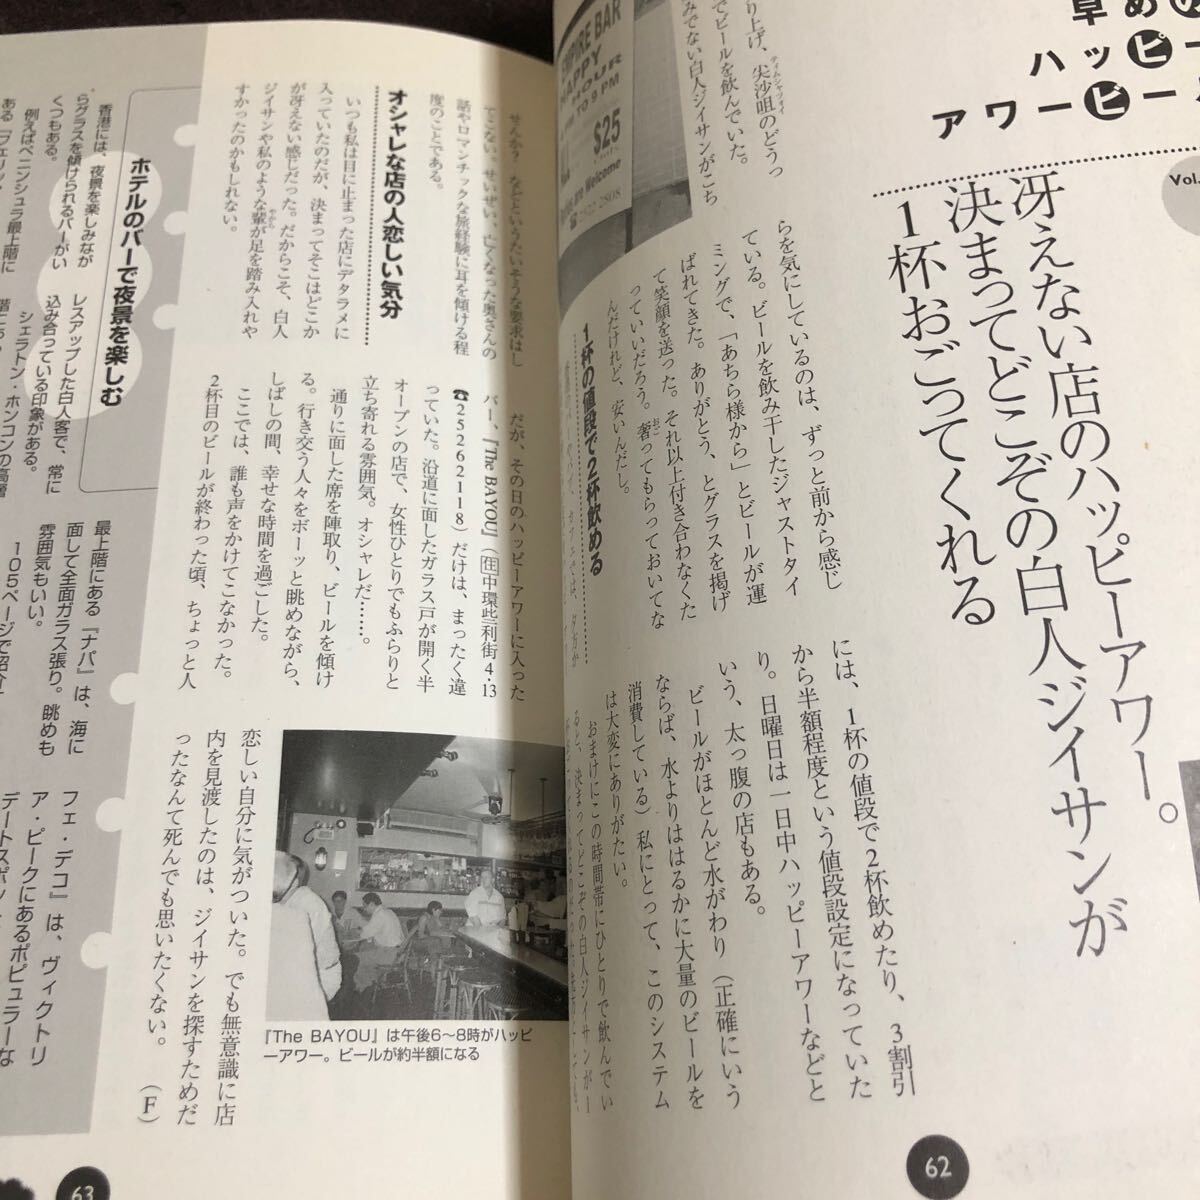 早めの
ハッピー
アワービール
Vol.
冴えない店のハッピーアワー。
決まってどこぞの白人ジイサンが
1杯おごってくれる
EMPIRE BAR
HAPPY
HOUR
TO 9 PM
$25
are Welcome
☎2522 2808
り上げ、尖沙咀のどうっ
タイムシャツォイ
でビールを飲んでいた。
みでない白人ジイサンがこち
らを気にしているのは、ずっと前から感じ
ている。ビールを飲み干したジャストタイ
ミングで、「あちら様から」とビールが運
ばれてきた。ありがとう、とグラスを掲げ
て笑顔を送った。それ以上付き合わなくた
っていいだろう。奢ってもらっておいてな
おご
んだけれど、安いんだし。
1杯の値段で2杯飲める
には、1杯の値段で2杯飲めたり、3割引
から半額程度という値段設定になっていた
り。日曜日は一日中ハッピーアワーなどと
いう、太っ腹の店もある。
ビールがほとんど水がわり（正確にいう
ならば、水よりはるかに大量のビールを
消費している）私にとって、このシステム
は大変にありがたい。
おまけにこの時間帯にひとりで飲んでい
ると、決まってどこぞの白人ジイサンが一
62
せんか？　などというたいそうな要求はし
てこない。せいぜい、亡くなった奥さんの
話やロマンチックな旅経験に耳を傾ける程
度のことである。
オシャレな店の人恋しい気分
いつも私は目に止まった店にデタラメに
入っていたのだが、決まってそこはどこか
が冴えない感じだった。だからこそ、白人
ジイサンや私のような輩が足を踏み入れや
やから
すかったのかもしれない。
だが、その日のハッピーアワーに入った
バー、『The BAYOU』（㊟中環些利街4・13
☎25262118）だけは、まったく違
っていた。沿道に面したガラス戸が開く半
オープンの店で、女性ひとりでもふらりと
立ち寄れる雰囲気。オシャレだ……。
通りに面した席を陣取り、ビールを傾け
る。行き交う人々をボーッと眺めながら、
しばしの間、幸せな時間を過ごした。
ここでは、誰も声をかけてこなかった。
2杯目のビールが終わった頃、ちょっと人
恋しい自分に気がついた。でも無意識に店
内を見渡したのは、ジイサンを探すためだ
ったなんて死んでも思いたくない。（F）
『The BAYOU』は午後6〜8時がハッピ
ーアワー。ビールが約半額になる
ホテルのバーで夜景を楽しむ
香港には、夜景を楽しみなが
らグラスを傾けられるバーがい
くつもある。
例えばペニンシュラ最上階に
ある『フェリッ
レスアップした白人客で、常に
込み合っている印象がある。
シェラトン・ホンコンの高層
最上階にある『ナパ』は、海に
面して全面ガラス張り。眺めも
雰囲気もいい。
105ページで紹介
フェ・デコ』は、ヴィクトリ
ア・ピークにあるポピュラーな
デートスポッ
63